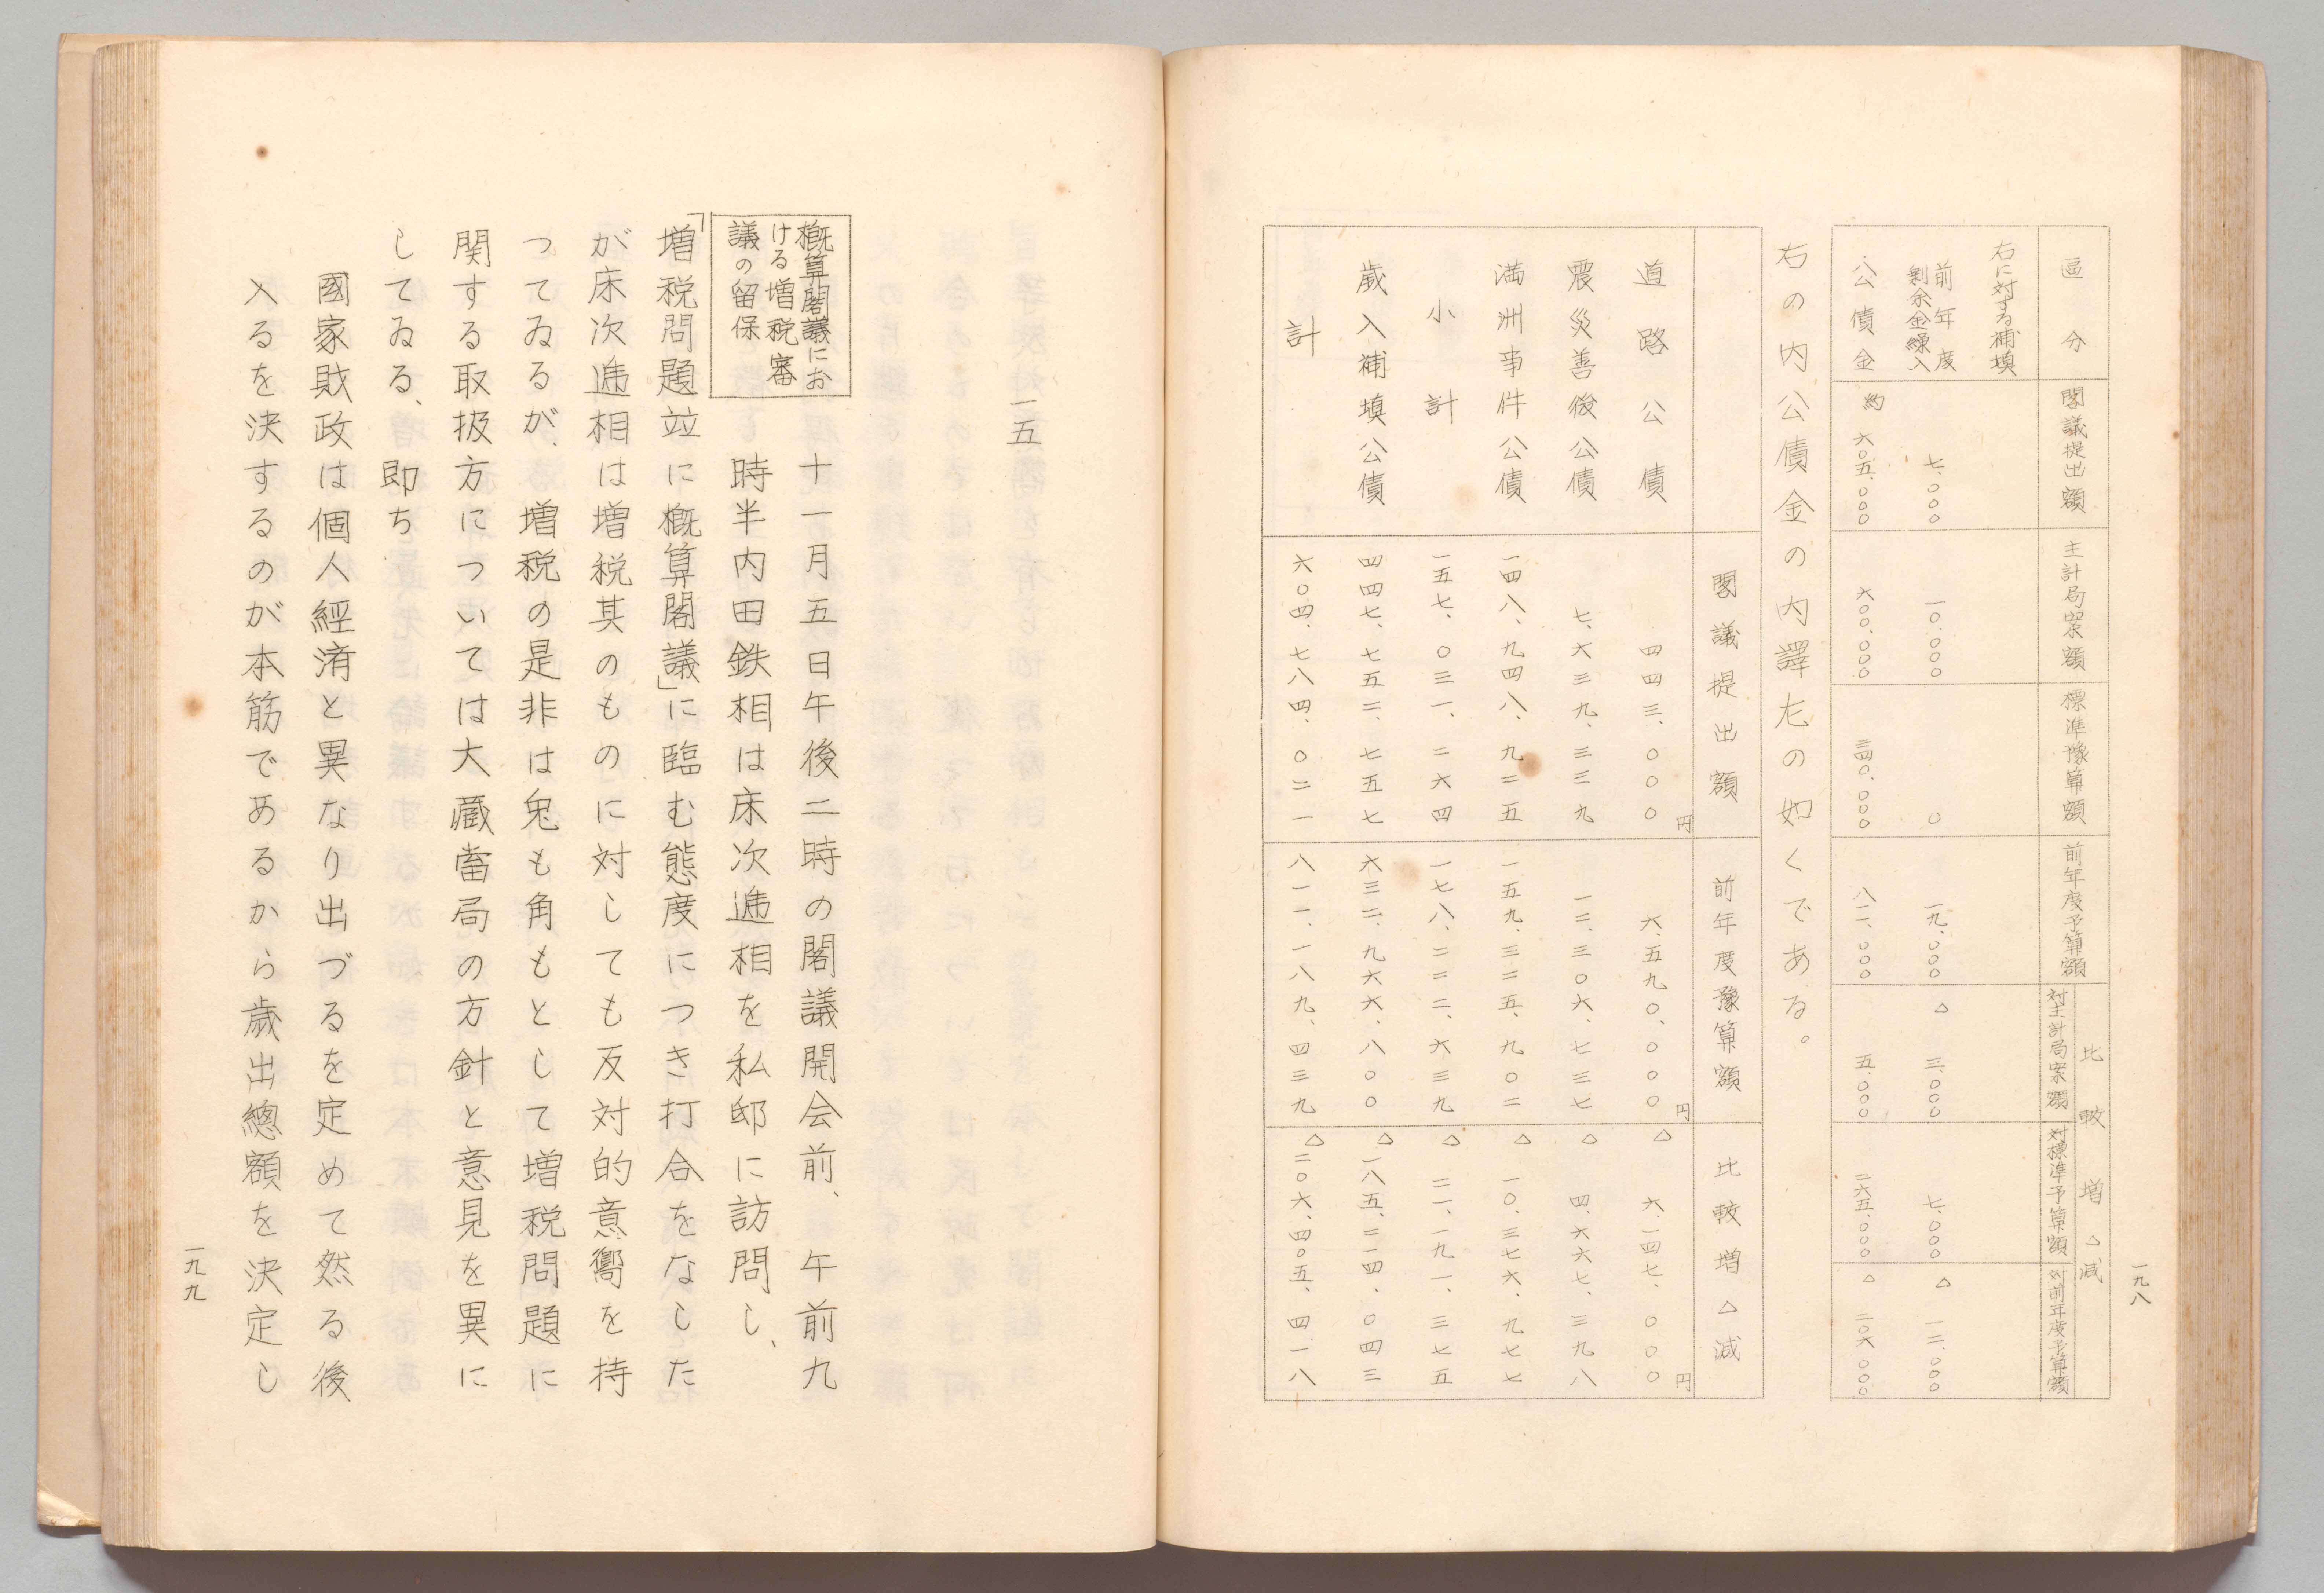 一九八
區分 閣議提出額 主計局案額 標準豫算額 前年度予算額 比較増△減
対主計局案額 対標準予算額 対前年度予算額
右に対する補填
前年度
剰余金繰入 七、〇〇〇 一〇、〇〇〇 〇 一九、〇〇〇 △三、〇〇〇 七、〇〇〇 △一二、〇〇〇
公債金 約六〇五、〇〇〇 六〇〇、〇〇〇 三四〇、〇〇〇 八一一、〇〇〇 五、〇〇〇 二六五、〇〇〇 △二〇六、〇〇〇
右の内公債金の内譯左の如くである。
閣議提出額 前年度豫算額 比較増△減
道路公債 四四三、〇〇〇円 六、五九〇、〇〇〇円 △六、一四七、〇〇〇円
震災善後公債 七、六三九、三三九 一二、三〇六、七三七 △四、六六七、三九八
満洲事件公債 一四八、九四八、九二五 一五九、三二五、九〇二 △一〇、三七六、九七七
小計 一五七、〇三一、二六四 一七八、二二二、六三九 △二一、一九一、三七五
歳入補填公債 四四七、七五二、七五七 六三二、九六六、八〇〇 △一八五、二一四、〇四三
計 六〇四、七八四、〇二一 八一一、一八九、四三九 △二〇六、四〇五、四一八
一五
概算閣議にお
ける増税審
議の留保
十一月五日午後二時の閣議開会前、午前九
時半内田鉄相は床次逓相を私邸に訪問し、
「増税問題竝に概算閣議」に臨む態度につき打合をなした
が床次逓相は増税其のものに対しても反対的意嚮を持
つてゐるが、増税の是非は兎も角もとして増税問題に
関する取扱方については大藏當局の方針と意見を異に
してゐる、即ち
國家財政は個人經済と異なり出づるを定めて然る後
入るを決するのが本筋であるから歳出總額を決定し
一九九